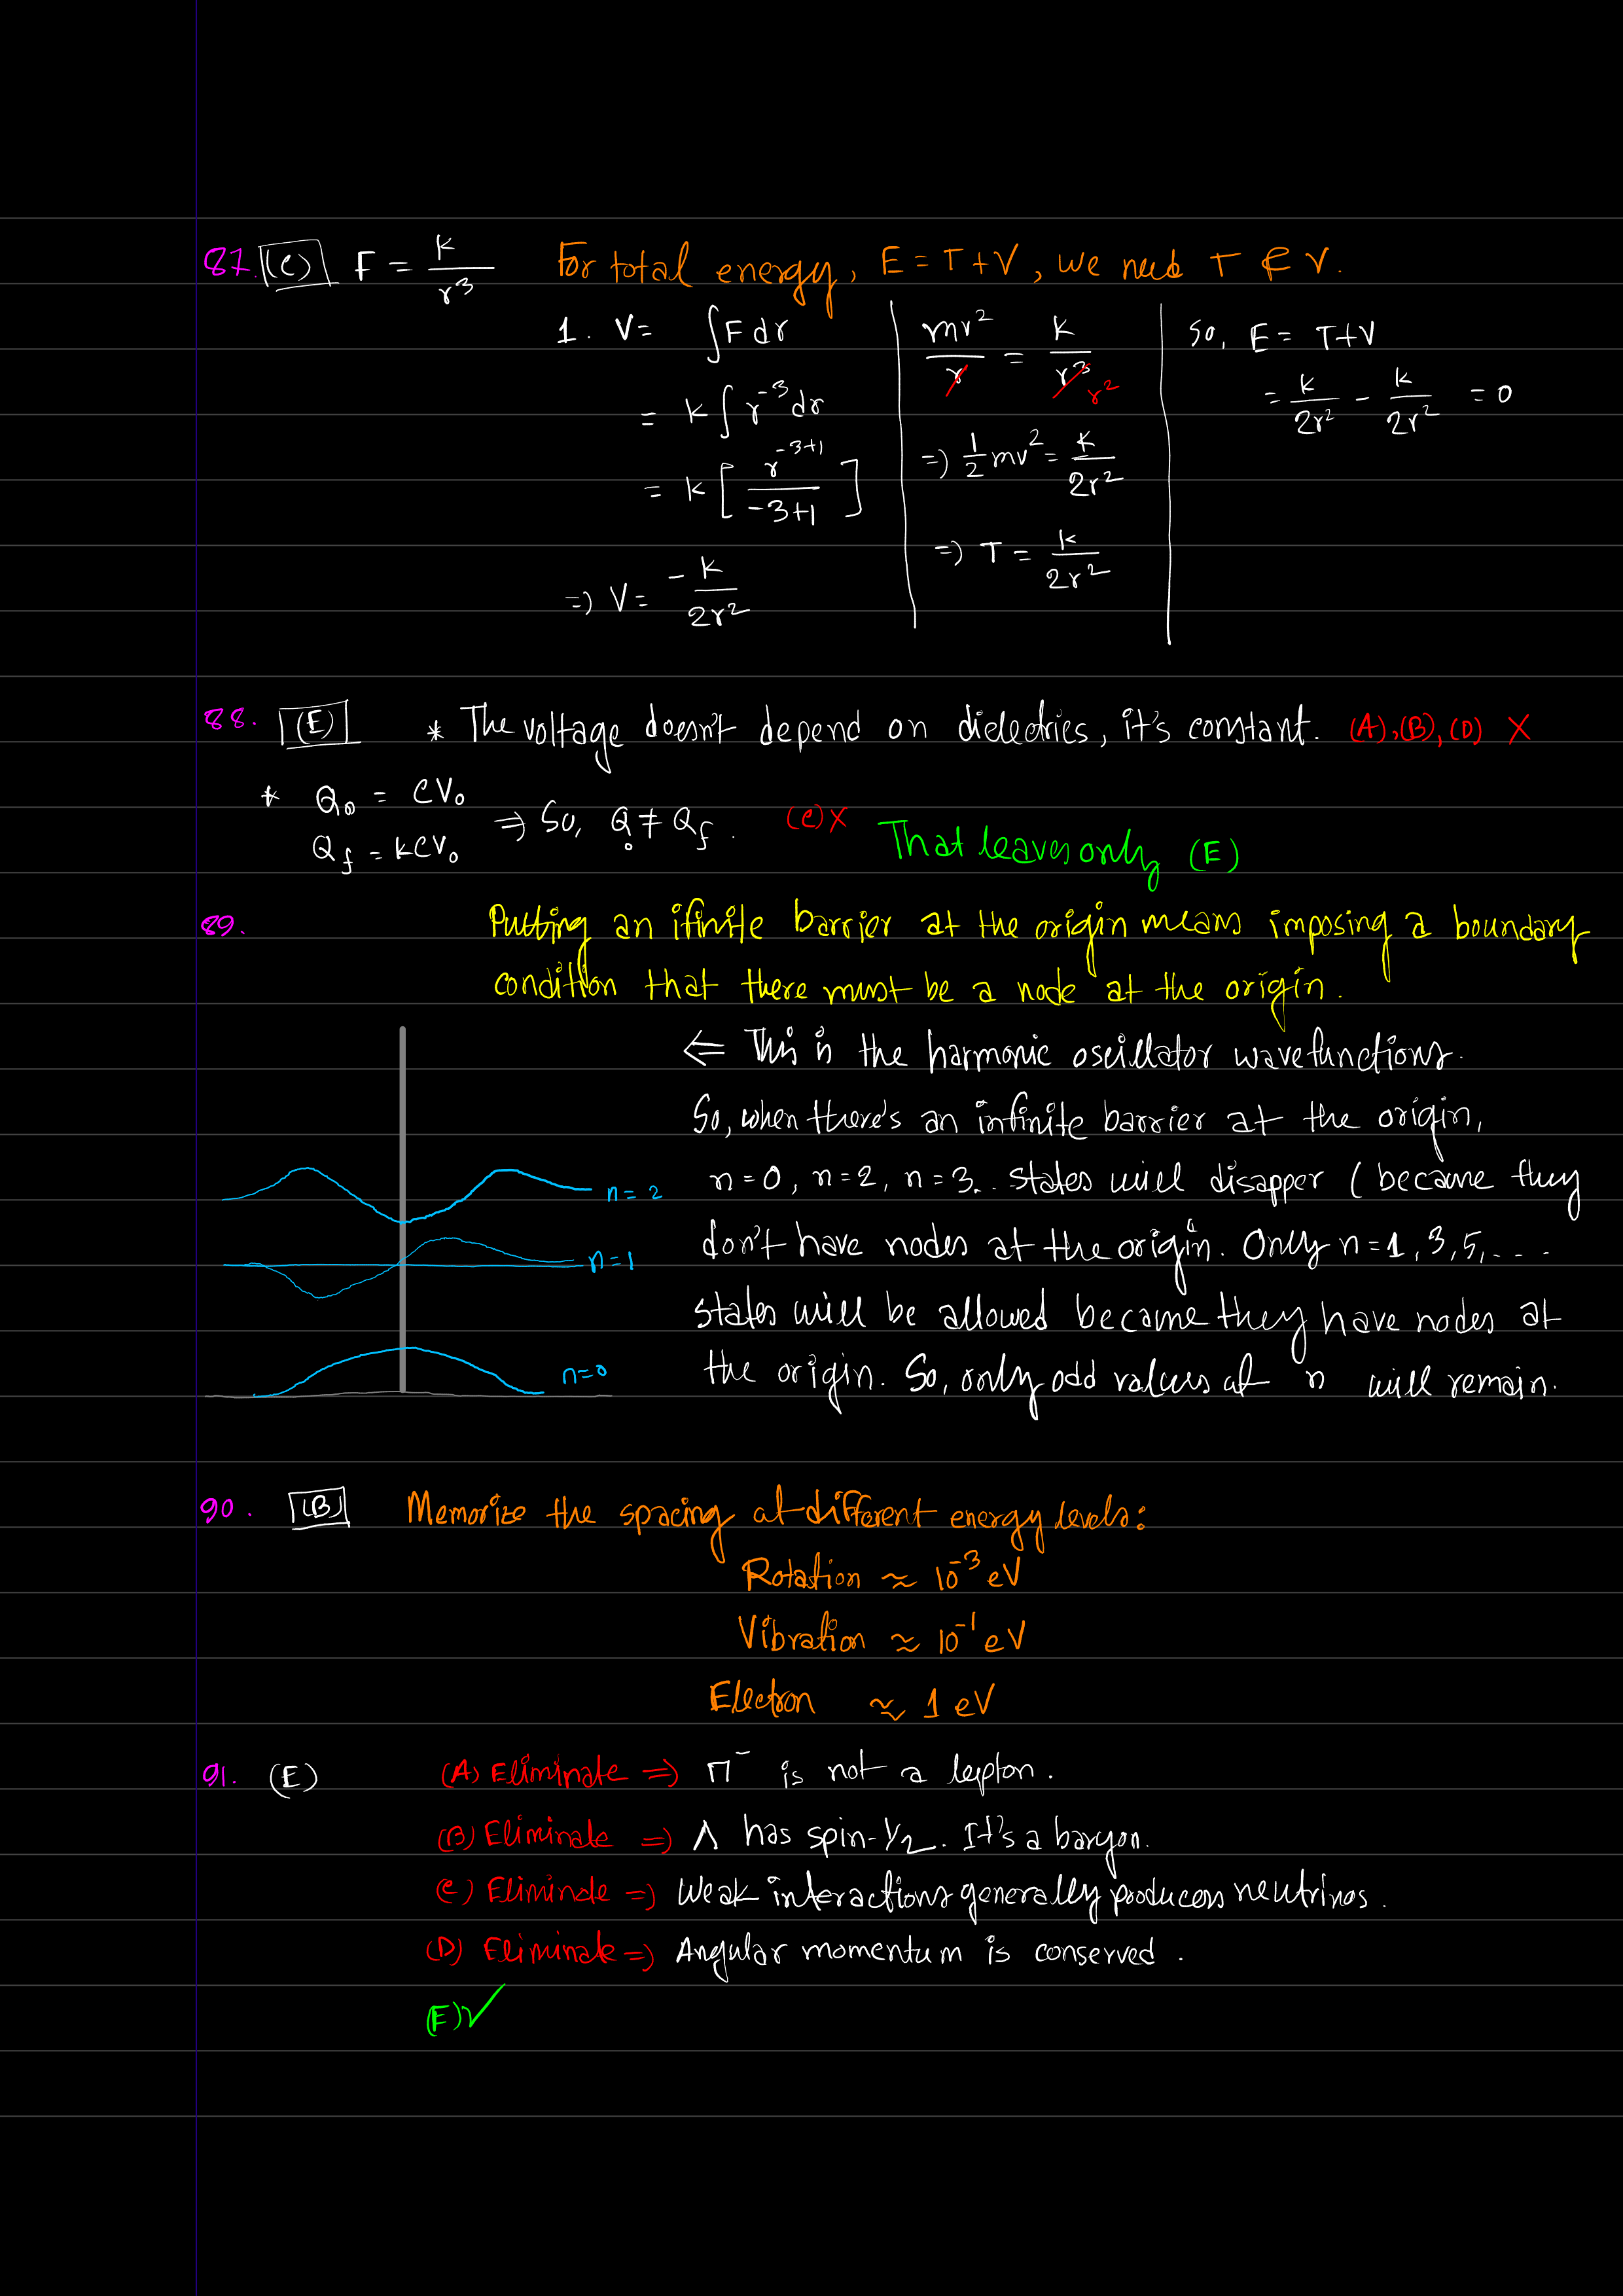 87. (C) F = k/r³ For total energy, E = T+V, we need T & V.
1. V = ∫F dr
= k∫r⁻³dr
= k[r⁻³⁺¹/-3+1]
=> V = -k/2r²
mv²/r = k/r³ r²
=> ½mv² = k/2r²
=> T = k/2r²
So, E = T+V
= k/2r² - k/2r² = 0
88. (E) * The voltage doesn't depend on dielectrics, it's constant. (A),(B),(D) X
* Q₀ = CV₀
Qf = kCV₀
=> So, Q₀ ≠ Qf. (C) X That leaves only (E)
89. Putting an ifinite barrier at the origin means imposing a boundary
condition that there must be a node at the origin.
<= This is the harmonic oscillator wavefunctions.
So, when there's an infinite barrier at the origin,
n=0, n=2, n=3.. states will disapper (because they
don't have nodes at the origin. Only n=1, 3, 5, ....
states will be allowed because they have nodes at
the origin. So, only odd values of n will remain.
n=2
n=1
n=0
90. (B) Memorize the spacing of different energy levels:
Rotation ≈ 10⁻³ eV
Vibration ≈ 10⁻¹ eV
Electron ≈ 1 eV
91. (E) (A) Eliminate => π⁻ is not a lepton.
(B) Eliminate => Λ has spin-1/2. It's a baryon.
(C) Eliminate => Weak interactions generally produces neutrinos.
(D) Eliminate => Angular momentum is conserved.
(E) ✓